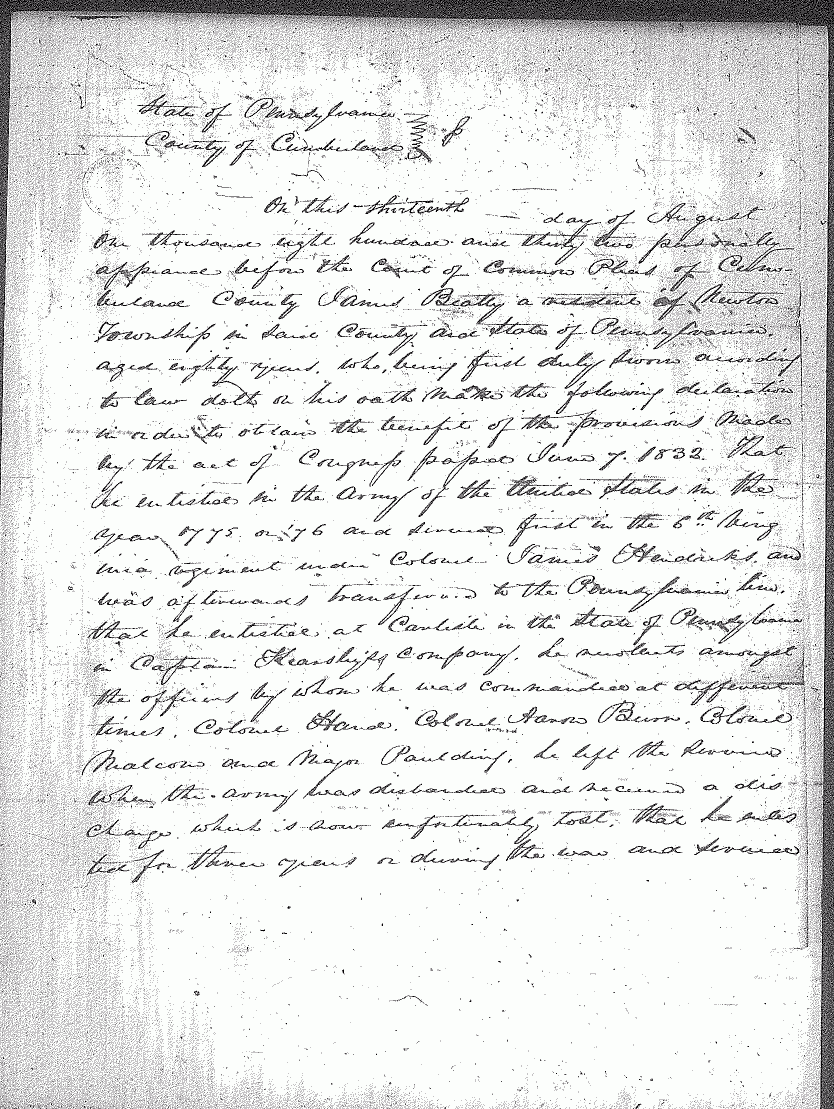 State of Pennsylvania
County of Cumberland } ss
On this thirteenth day of August
One thousand eight hundred and thirty two personally
appeared before the Court of Common Pleas of Cum-
berland County James Beatty a resident of Newton
Township in said County and State of Pennsylvania.
aged eighty years, who, being first duly sworn according
to law doth on his oath make the following declaration
in order to obtain the benefit of the provisions made
by the act of Congress passed June 7. 1832. That
he enlisted in the Army of the United States in the
year 1775 or '76 and served first in the 6th Virg
inia regiment under Colonel James Hendricks, and
was afterwards transferred to the Pennsylvania line.
that he enlisted at Carlisle in the State of Pennsylvania
in Captain company, he recollects amongst
the officers by whom he was commanded at different
times, Colonel Hand, Colonel Aaron Burr, Colonel
Malcom and Major Paulding, he left the service
when the army was disbanded and received a dis
charge which is now unfortunately lost, that he enlis
ted for three years or during the war and served